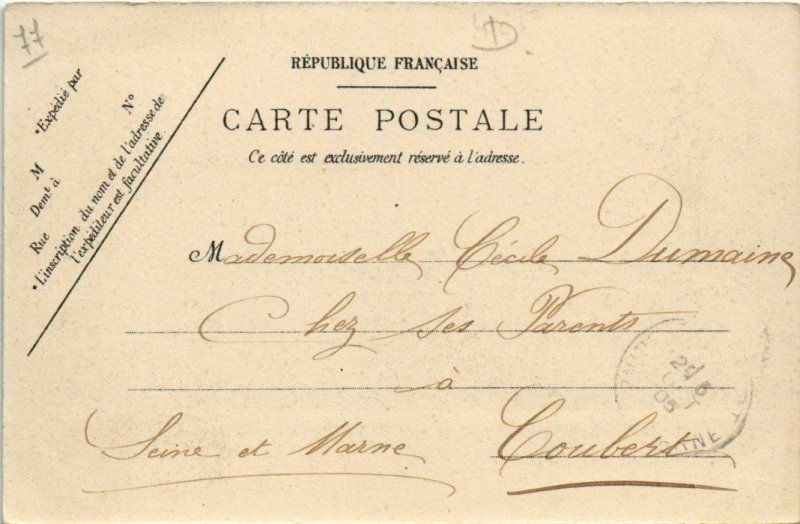 77
D
RÉPUBLIQUE FRANÇAISE
CARTE POSTALE
Ce côté est exclusivement réservé à l'adresse.
*Expédié par
M N°
Demt à
Rue
*L'inscription du nom et de l'adresse de
l'expéditeur est facultative
Mademoiselle Cécile Dumaine
Chez ses Parents
à
Seine et Marne Coubert
05